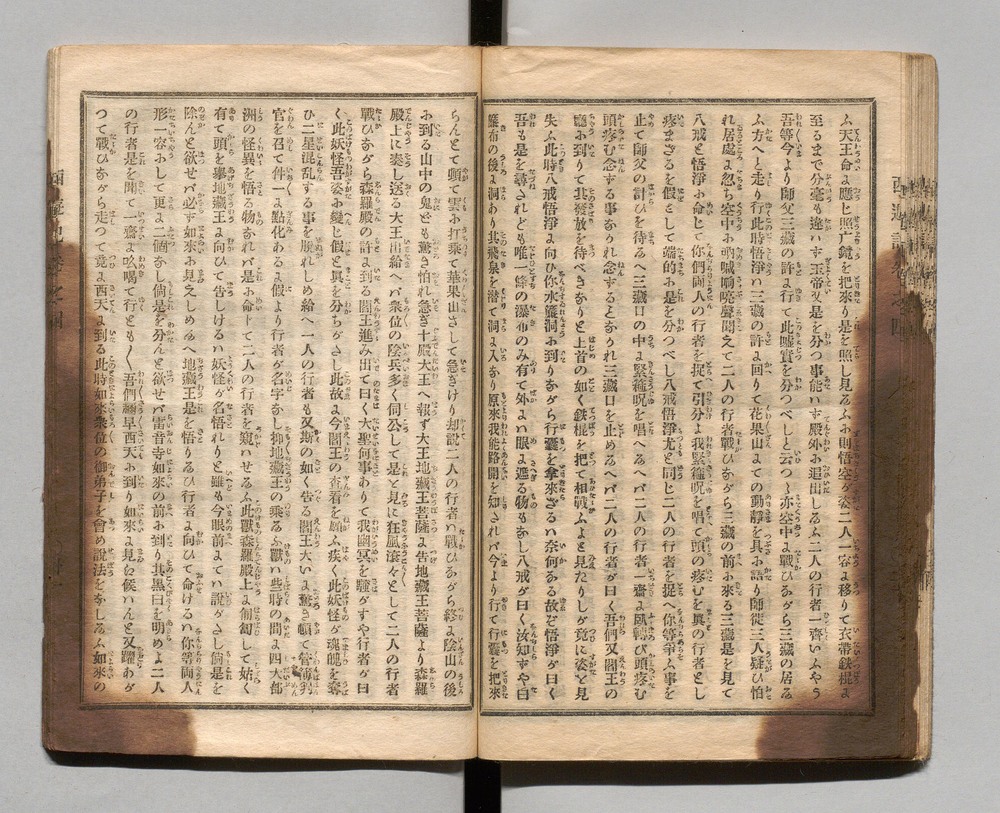 ふ天王命よ應じ照亡鏡を把來り是を照し見るふお則悟空が姿二人一容よ移りて衣帶鉄棍よ
至るまで分毫も違ハず玉帝又是を分つ事能ハず殿外お追出しるふ二人の行者一齊いふやう
吾等今より師父三藏の許よ行て此噓實を分つべしと云つヽ亦空中よ戰ひあがら三藏の居る
ふ方へと走り行此時悟淨ハ三藏の許よ回りて花果山よての動靜を具お話り師徒三人疑ひ怕
れ居處よ忽ち空中お吶喊响曉聲聞えて二人の行者戰ひあがら三藏の前お來る三藏是を見て
八戒と悟淨お命じて你們両人二人の行者を捉て引分よ我緊箍呪を唱て頭の疼むを眞の行者とし
疼まざるを假として端的お是を分つべし八戒悟淨尤と同じ二人の行者を捉へ你等爭ふ事を
止て師父の計ひを待るへ三藏口の中よ緊箍呪を唱へるへバ二人の行者一齊よ風轉び頭疼む
頭疼む念ずる事あかれ念ずるとあかれ三藏口を止めるへバ二人の行者が曰く吾們又閻王の
廳お到りて其發放を待べきありと上首の如く鉄棍を把て相戰ふよと見たりしが竟に姿と見
失ふ此時八戒悟淨よ向ひ你水簾洞お到りあがら行囊を拿來ざるハ奈何るる故ぞ悟淨が曰く
吾も是を尋されども唯一條の瀑布のみ有て外よハ眼よ遮る物もあし八戒が曰く汝知ずや白
簾布の後よ洞あり其飛泉を潜て洞よ入あり原來我能路開を知されバ今より行て行囊を把來
らんとて頓て雲お打乘て華果出さして急ぎけり却説二人の行者ハ戰ひるがら終よ陰山の後
お到る山中の鬼ども驚き怕れ急ぎ十殿大王へ報ず大王地藏王菩薩よ告地藏王菩薩より森羅
殿上に奏し送る大王出給へバ衆位の陰兵多く伺公して是と見に狂風滾々として二人の行者
戰ひあがら森羅殿の許よ到る閻王進み出て曰く大聖何事ありて我幽冥を騷がすや行者が曰
く此妖怪吾姿お變じ假と眞を分ちがさし此故よ今閻王の査看を願ふ疾く此妖怪が魂魄を奪
ひ二星混乱する事を脱れしめ給へ一人の行者も又斯の如く告る閻王大いよ驚き頓て管薄判
官を召て件一よ點化あるよ假より行者が名字あし抑地藏王の乘るふ獸ハ些時の間よ四大部
洲の怪異を悟る物あれバ是お命下て二人の行者を窺ハせるふ此獸森羅殿上よ匍匐して姑く
有て頭を擧地藏王よ向ひて告しけるハ妖怪が名悟れりと雖も今眼前よてハ説がさし倘是を
除んと欲せバ必ず如來お見えしめるへ地藏王是を悟りるひ行者よ向ひて命けるハ你等両人
形一容おして更よ二個あし倘是を分んと欲せバ雷音寺如來の前お到り其黒白を明めよ二人
の行者是を聞て一齊よ吆喝て行くとも〱吾們疆早西天お到り如來よ見を候ハんと又躍あが
つて戰ひあがら走つて竟よ西天よ到る此時如來衆位の御弟子を會め説法をあしるふ如來の